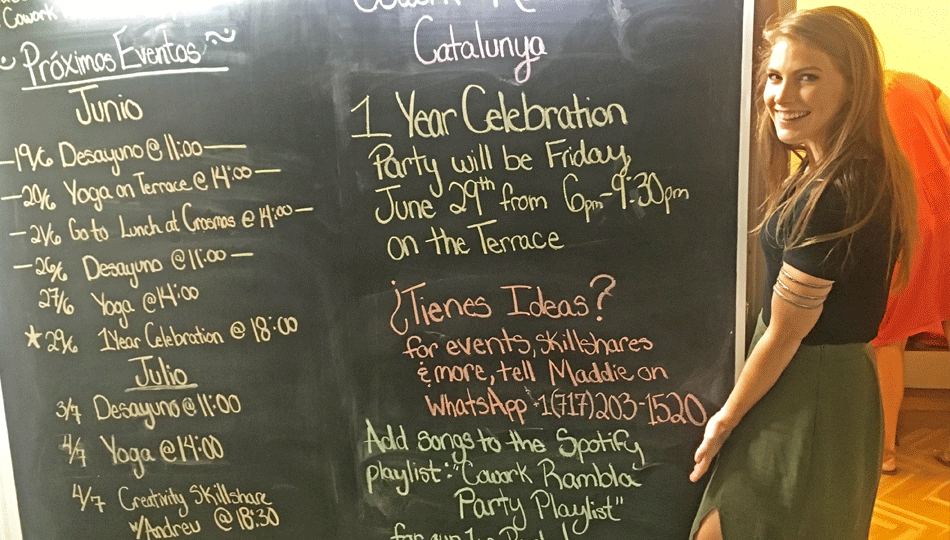 Cowork
Próximos Eventos
Junio
19/6 Desayuno @ 11:00
20/6 Yoga on Terrace @ 14:00
21/6 Go to Lunch at Cosmos @ 14:00
26/6 Desayuno @ 11:00
27/6 Yoga @ 14:00
★ 29/6 1 Year Celebration @ 18:00
Julio
3/7 Desayuno @ 11:00
4/7 Yoga @ 14:00
4/7 Creativity Skillshare
w/Andreu @ 18:30
Catalunya
1 Year Celebration
Party will be Friday,
June 29th from 6pm-9:30pm
on the Terrace
¿Tienes Ideas?
for events, skillshares
& more, tell Maddie on
WhatsApp +1(717)203-1520
Add songs to the Spotify
playlist: "Cowork Rambla
Party Playlist"
for our